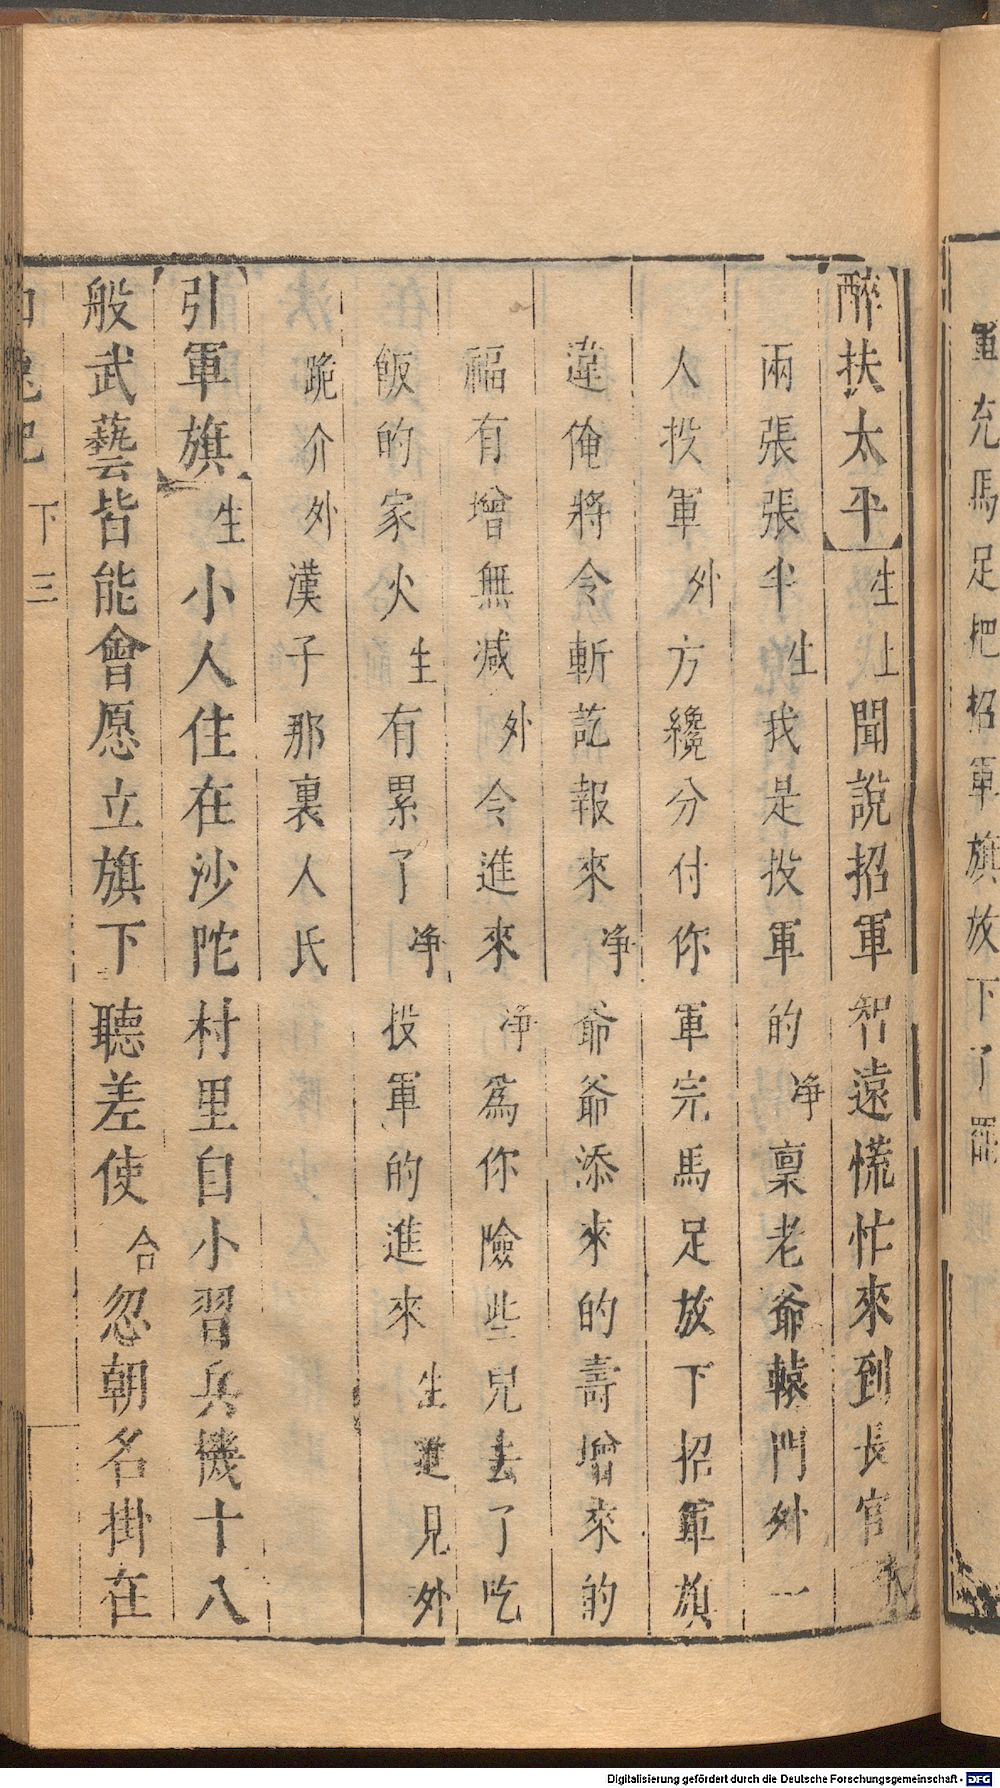 軍充馬足把招軍旗放下了罷
醉扶太平生上聞說招軍智遠慌忙來到長官
兩張張半生我是投軍的净禀老爺轅門外一
人投軍外方纔分付你軍完馬足放下招軍旗
違俺將令斬訖報來净爺爺添來的壽增來的
福有增無减外令進來净爲你險些兒去了吃
飯的家火生有累了净投軍的進來生進見外
跪介外漢子那裏人氏
引軍旗生小人住在沙陀村里自小習兵機十八
般武藝皆能會愿立旗下聽差使合忽朝名掛在
下三
Digitalisierung gefördert durch die Deutsche Forschungsgemeinschaft - DFG